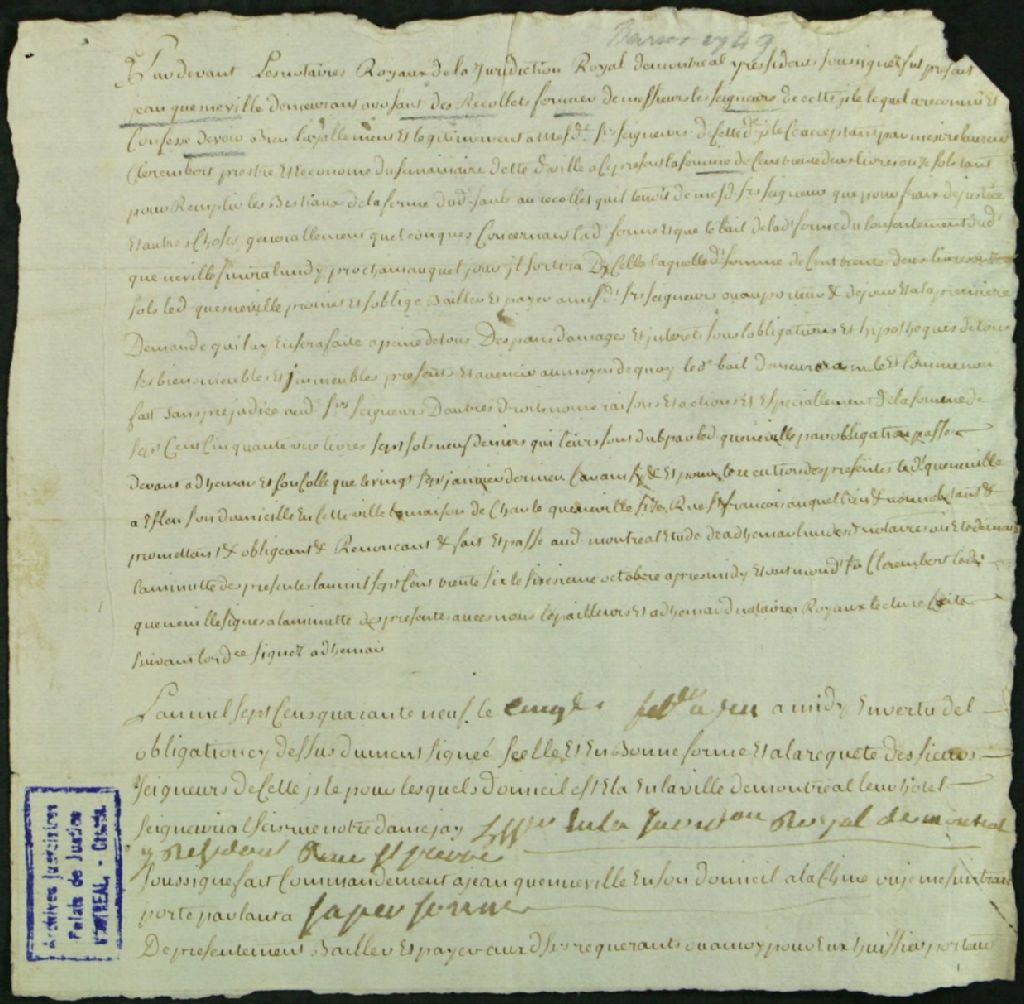 Fevrier 1749
Pardevant Les notaires Royaux de la Jurisdiction Royal de montreal y residens soussignez fut present
jean quenneville demeurant au sault des Recollets fermier de messieurs les seigneurs de cette isle lequel a reconnu Et
Confesse devoir bien Loyallement Et legitimement a mesd. srs. seigneurs de cette d. isle Ce acceptant par mesire
Clerembert prestre Et econome du seminaire de cette d. ville a Ce present la somme de Cent trente deux livres onze sols tant
pour Remplir les Bestiaux de la ferme dud. sault au recollet quil tenoit de mesd. srs. seigneurs que pour fraix de justice
Et autres Choses generallement quelconques Concernant lad. ferme Et que le bail de lad. ferme du Consentement dud.
queneville finira lundy prochain auquel jour jl sortira D'jCelle laquelle d. somme de Cent trente deux livres onze
sols led. queneville promet Et s'oblige Bailler Et payer a mesd. srs. seigneurs ou au porteur & de jour Et a la premiere
Demande qui luy En sera faite a peine de tous Despans damages Et jnterest sous l'obligation Et hypotheques de tous
ses biens meubles Et jmmeubles presents Et avenir au moyen de quoy led. bail demeurera nul Et Comme non
fait sans prejudice aud. srs. seigneurs D'autres droits noms raisons Et actions Et Speciallement de la somme de
sept Cent Cinquante livres sept sols neuf deniers qui leurs sont dub par led. queneville par obligation passé
Devant adhemar Et son Collegue le vingt sept janvier dernier Car ainsi & Et pour l'execution des presentes led. queneville
a Esleu son domicille En Cette ville maison de Charle queneville Rue St. francois auquel lieu & nonobstant &
promettant & obligeant & Renoncant & fait Et passé aud. montreal Etude de adhemar lundes d. notaire ou Est demeuré
la minutte des presentes Lan mil sept Cent trente six le sixieme octobre apres midy Et ont mond. sr. Clerembert led.
queneville signes a la minutte des presentes avec nous lepailleur Et adhemar notaires Royaux lecture faite
suivant lordce signez adhemar
Lan mil sept Cens quarante neuf le a midy En vertu del
obligation cy dessus dument signeé scellé Et En Bonne forme Et a la requete des sieurs
Seigneurs de Cette jsle pour lesquels domicil est Elu En la ville de montreal Leur hotel
seigneurial seize rue notre dame jay huissier En la Jurisdiction Royal de montreal
y Residant Rue St pierre
soussigné fait Commandement a jean quenneville En son domicil a la Chine ou je me suis trans
porté parlant a sa personne
De presentement Bailler Et payer aux d. srs. requerants ou a moy pour Eux huissier porteur
Archives Judiciaires
Palais de Justice
MONTREAL - CANADA